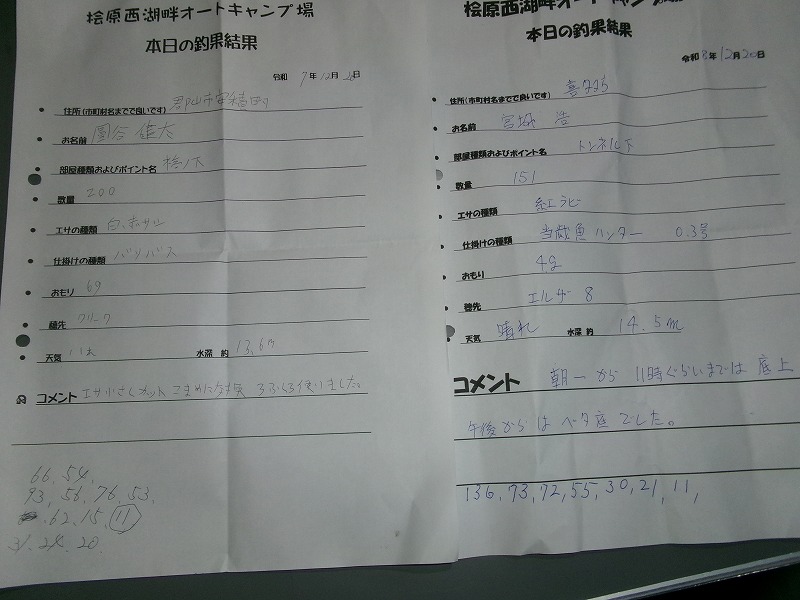 桧原西湖畔オートキャンプ場
本日の釣果結果
令和 7年 12月 20日
住所(市町村名までで良いです) 郡山市安積町
お名前 圓谷 雄太
部屋種類およびポイント名 桧ノ下
数量 200
エサの種類 白、赤サシ
仕掛けの種類 バリバス
おもり 6g
穂先 クリーク
天気 水深 約 13.6m
コメント エサ小さくカット こまめに 使いました。
66, 54,
93, 56, 76, 53,
62, 15, 11
31, 24, 20
桧原西湖畔オートキャンプ場
本日の釣果結果
令和 年 12月 20日
住所(市町村名までで良いです) 喜多方
お名前 宮城 浩
部屋種類およびポイント名 トンネル下
数量 151
エサの種類 紅ラビ
仕掛けの種類 当歳魚ハンター 0.3号
おもり 4g
穂先 エルザ 8
天気 晴れ 水深 約 14.5m
コメント 朝一から 11時ぐらいまでは 底上
午後からは ベタ底でした。
136, 93, 72, 55, 30, 21, 11,